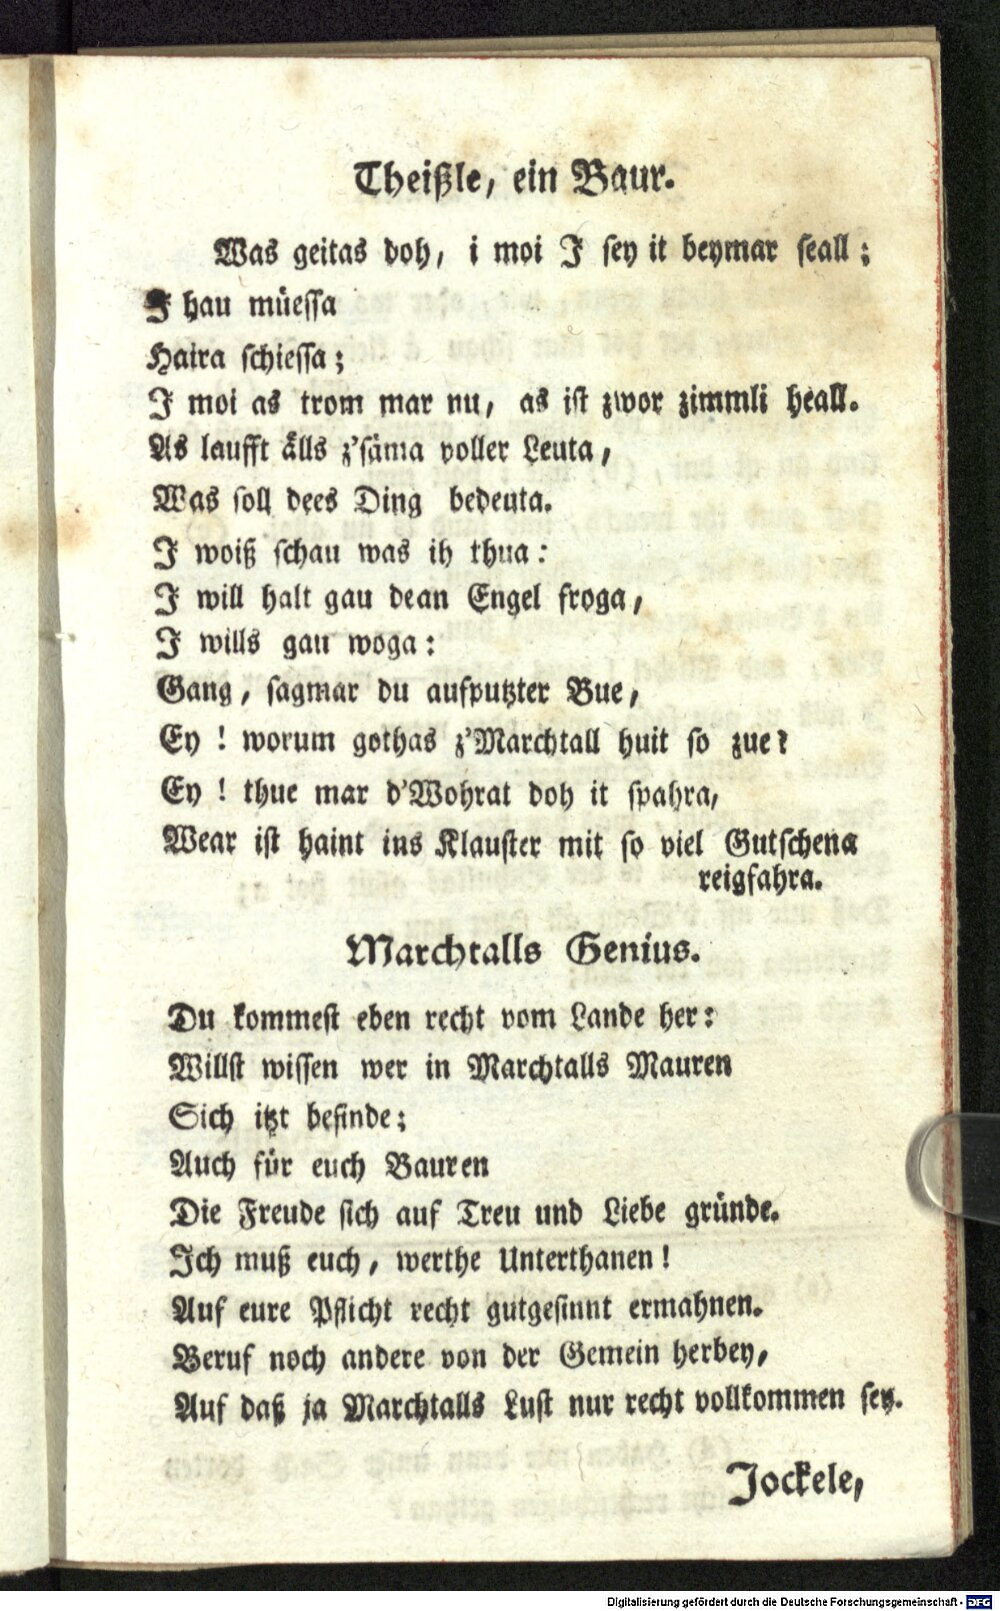 Theißle, ein Baur.
Was geitas doh, i moi I sey it beymar seall;
I hau müessa
Haira schiessa;
I moi as trom mar nu, as ist zwor zimmli heall.
As laufft älls z'säma voller Leuta,
Was soll dees Ding bedeuta.
I woiß schau was ih thua:
I will halt gau dean Engel froga,
I wills gau woga:
Gang, sagmar du aufputzter Bue,
Ey ! worum gothas z'Marchtall huit so zue?
Ey ! thue mar d'Wohrat doh it spahra,
Wear ist haint ins Klauster mit so viel Gutschena
reigfahra.
Marchtalls Genius.
Du kommest eben recht vom Lande her:
Willst wissen wer in Marchtalls Mauren
Sich itzt befinde;
Auch für euch Bauren
Die Freude sich auf Treu und Liebe gründe.
Ich muß euch, werthe Unterthanen!
Auf eure Pflicht recht gutgesinnt ermahnen.
Beruf noch andere von der Gemein herbey,
Auf daß ja Marchtalls Lust nur recht vollkommen sey.
Jockele,
Digitalisierung gefördert durch die Deutsche Forschungsgemeinschaft - DFG